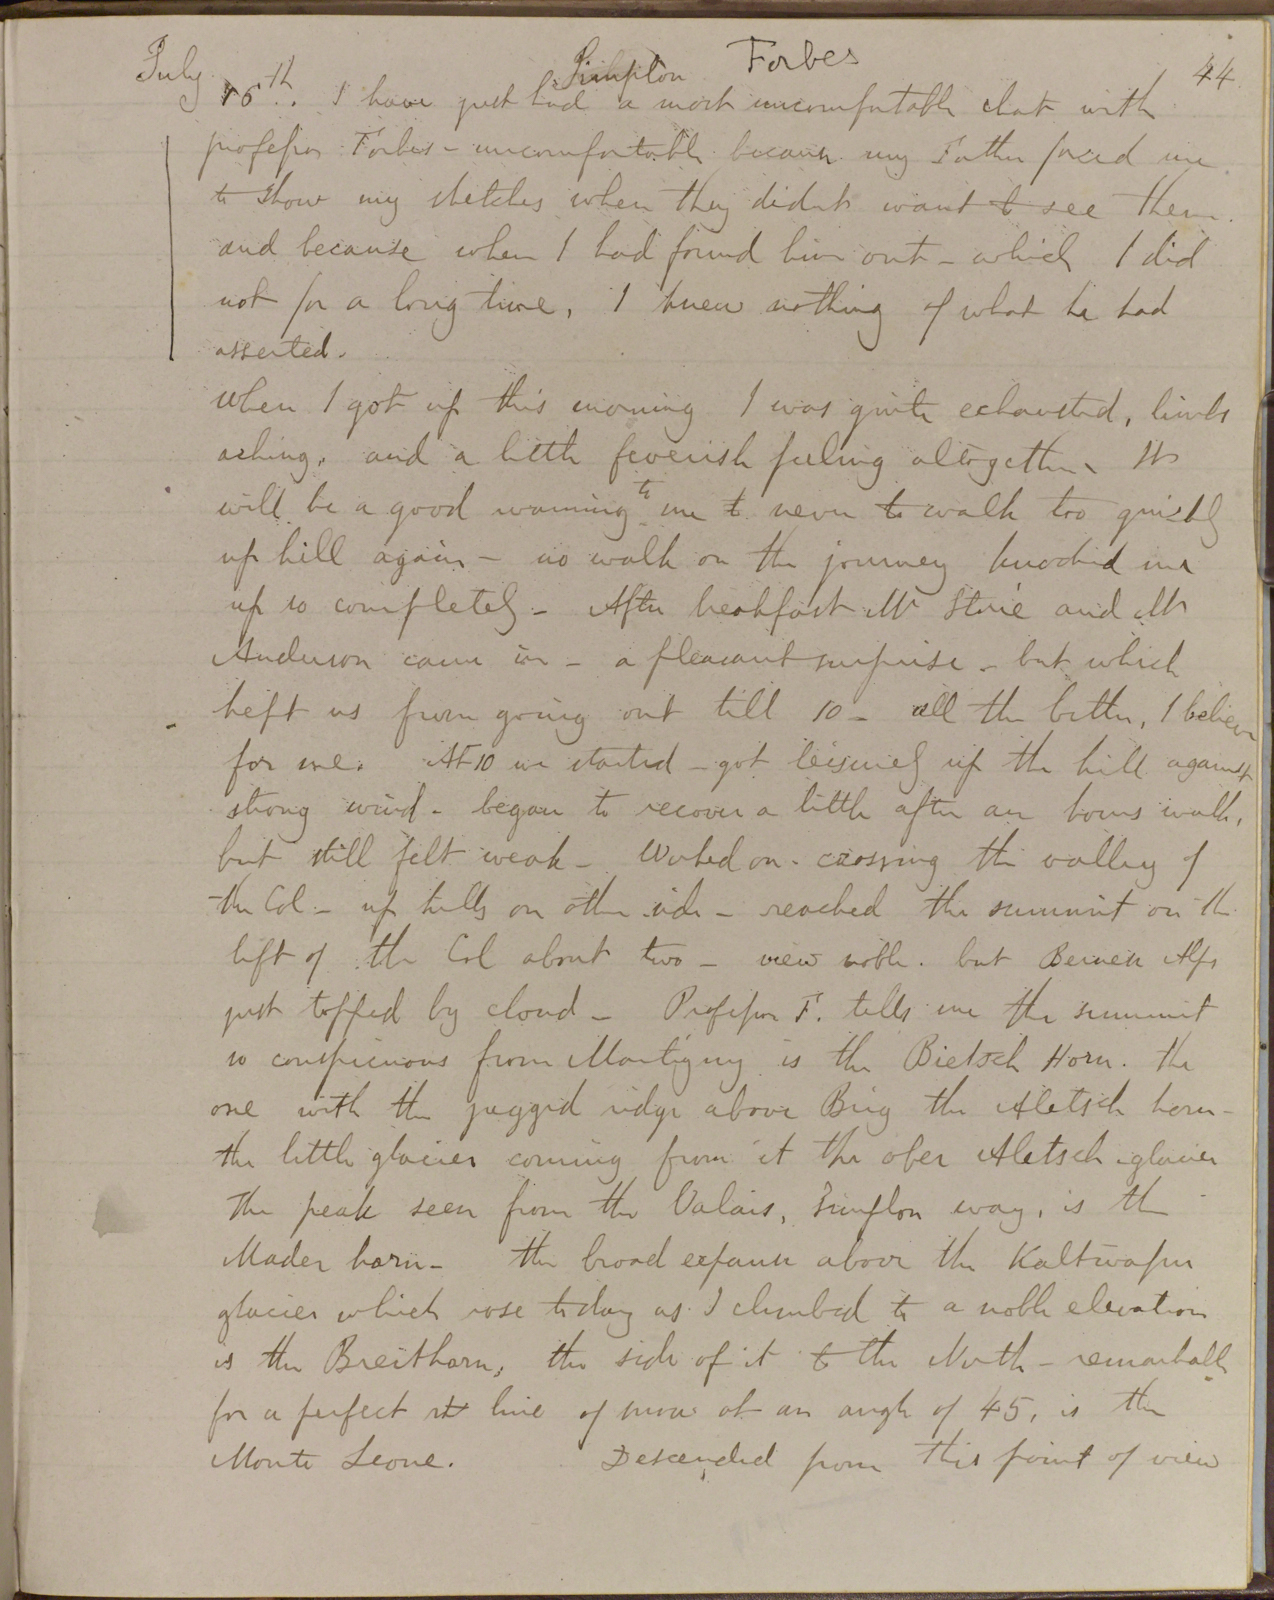 July Simplon Forbes 44
15th. I have just had a most uncomfortable chat with
professor Forbes - uncomfortable because my Father forced me
to show my sketches when they didnt want to see them.
and because when I had found him out - which I did
not for a long time, I knew nothing of what he had
asserted.
When I got up this morning I was quite exhausted, limbs
aching, and a little feverish feeling altogether. It
will be a good warning to me to never to walk too quickly
up hill again - no walk on the journey knocked me
up so completely - After breakfast Mr and Mr
Anderson came in - a pleasant surprise - but which
kept us from going out till 10 - all the better, I believe
for me. At 10 we started - got leisurely up the hill against
strong wind - began to recover a little after an hours walk,
but still felt weak - Worked on - crossing the valley of
the Col - up hills on other side - reached the summit on the
left of the Col about two - view noble. but Bernese Alps
just topped by cloud - Professor F. tells me the summit
so conspicuous from Martigny is the Bietsch Horn. the
one with the jagged ridge above Brig the Aletsch horn -
the little glacier coming from it the ober Aletsch glacier
The peak seen from the Valais, Simplon way, is the
Mader horn - the broad expanse above the Kaltwasser
glacier which rose today as I climbed to a noble elevation
is the Breithorn, the side of it to the North - remarkable
for a perfect st line of snow at an angle of 45, is the
Monte Leone. Descended from this point of view